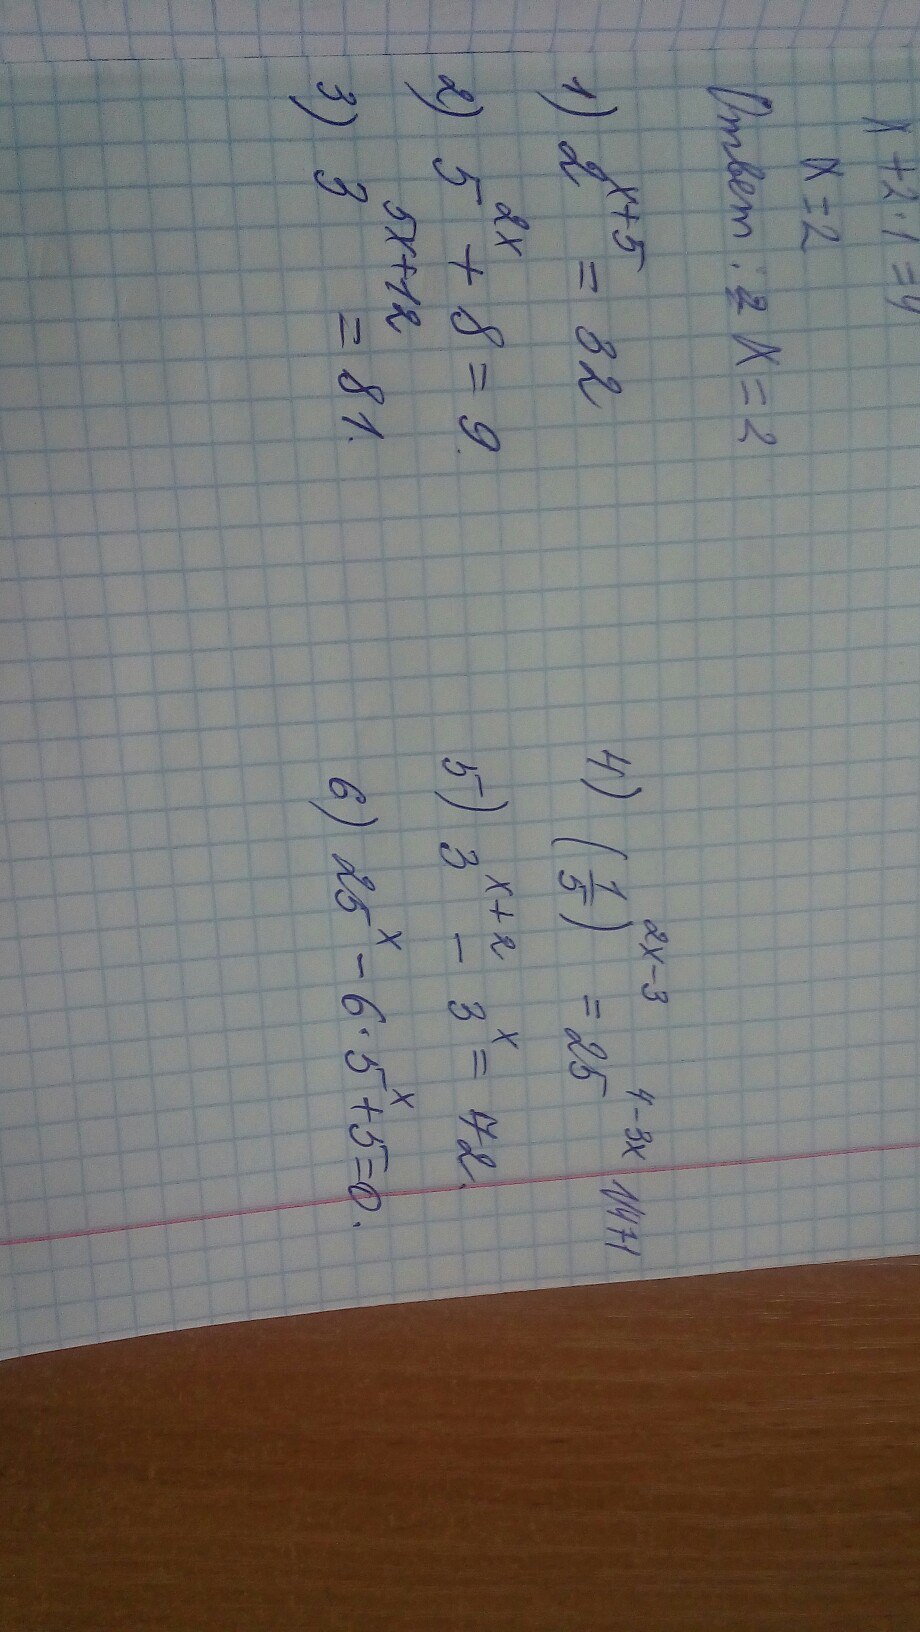 x + 2 · 1 = 4
x = 2
Ответ: 2 x = 2
1) 2^{x+5} = 32
2) 5^{2x} + 8 = 9.
3) 3^{5x+12} = 81.
4) (1/5)^{2x-3} = 25^{4-3x}
5) 3^{x+2} - 3^x = 72.
6) 25^x - 6 · 5^x + 5 = 0.